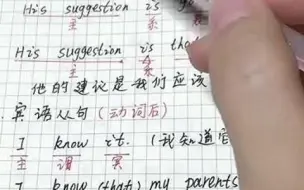 His suggestion is
主 系
His suggestion is tha
主 系
他的建议是我们应该
宾语从句（动词后）
I know it. （我知道
主 谓 宾
I know (that) my parents